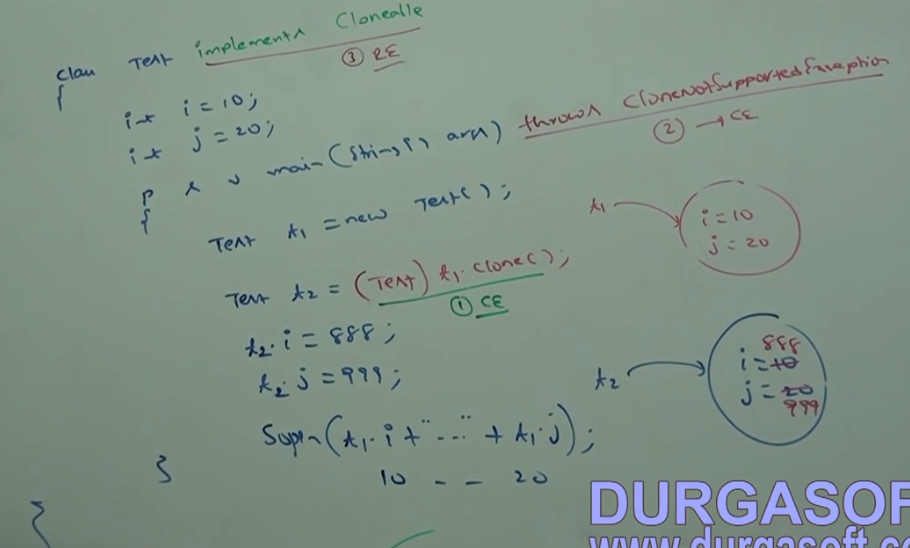 class Test implements Cloneable
③ RE
{
int i = 10;
int j = 20;
p s v main(String[] args) throws CloneNotSupportedException
② → CE
{
Test t1 = new Test();
t1
i = 10
j = 20
Test t2 = (Test) t1.clone();
① CE
t2.i = 888;
t2.j = 999;
t2
888
i = 10
j = 20
999
Sopln(t1.i + "---" + t1.j);
10 - - 20
}
}
DURGASOF
www.durgasoft.co